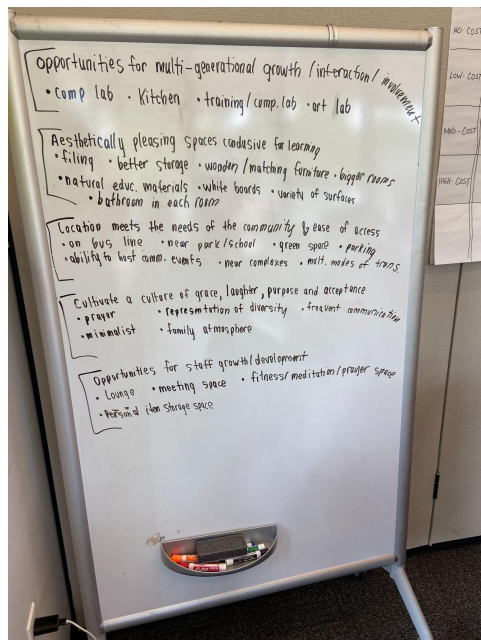 Opportunities for multi-generational growth / interaction / involvement
• comp lab • Kitchen • training/comp. lab • art lab
Aesthetically pleasing spaces conducive for learning
• filing • better storage • wooden/matching furniture • bigger rooms
• natural educ. materials • white boards • variety of surfaces
• bathroom in each room
Location meets the needs of the community & ease of access
• on bus line • near park/school • green space • parking
• ability to host comm. events • near complexes • mult. modes of trans.
Cultivate a culture of grace, laughter, purpose and acceptance
• prayer • representation of diversity • frequent communication
• minimalist • family atmosphere
Opportunities for staff growth/development
• Lounge • meeting space • fitness/meditation/prayer space
• Personal item storage space
NO-COST
LOW-COST
MED-COST
HIGH-COST